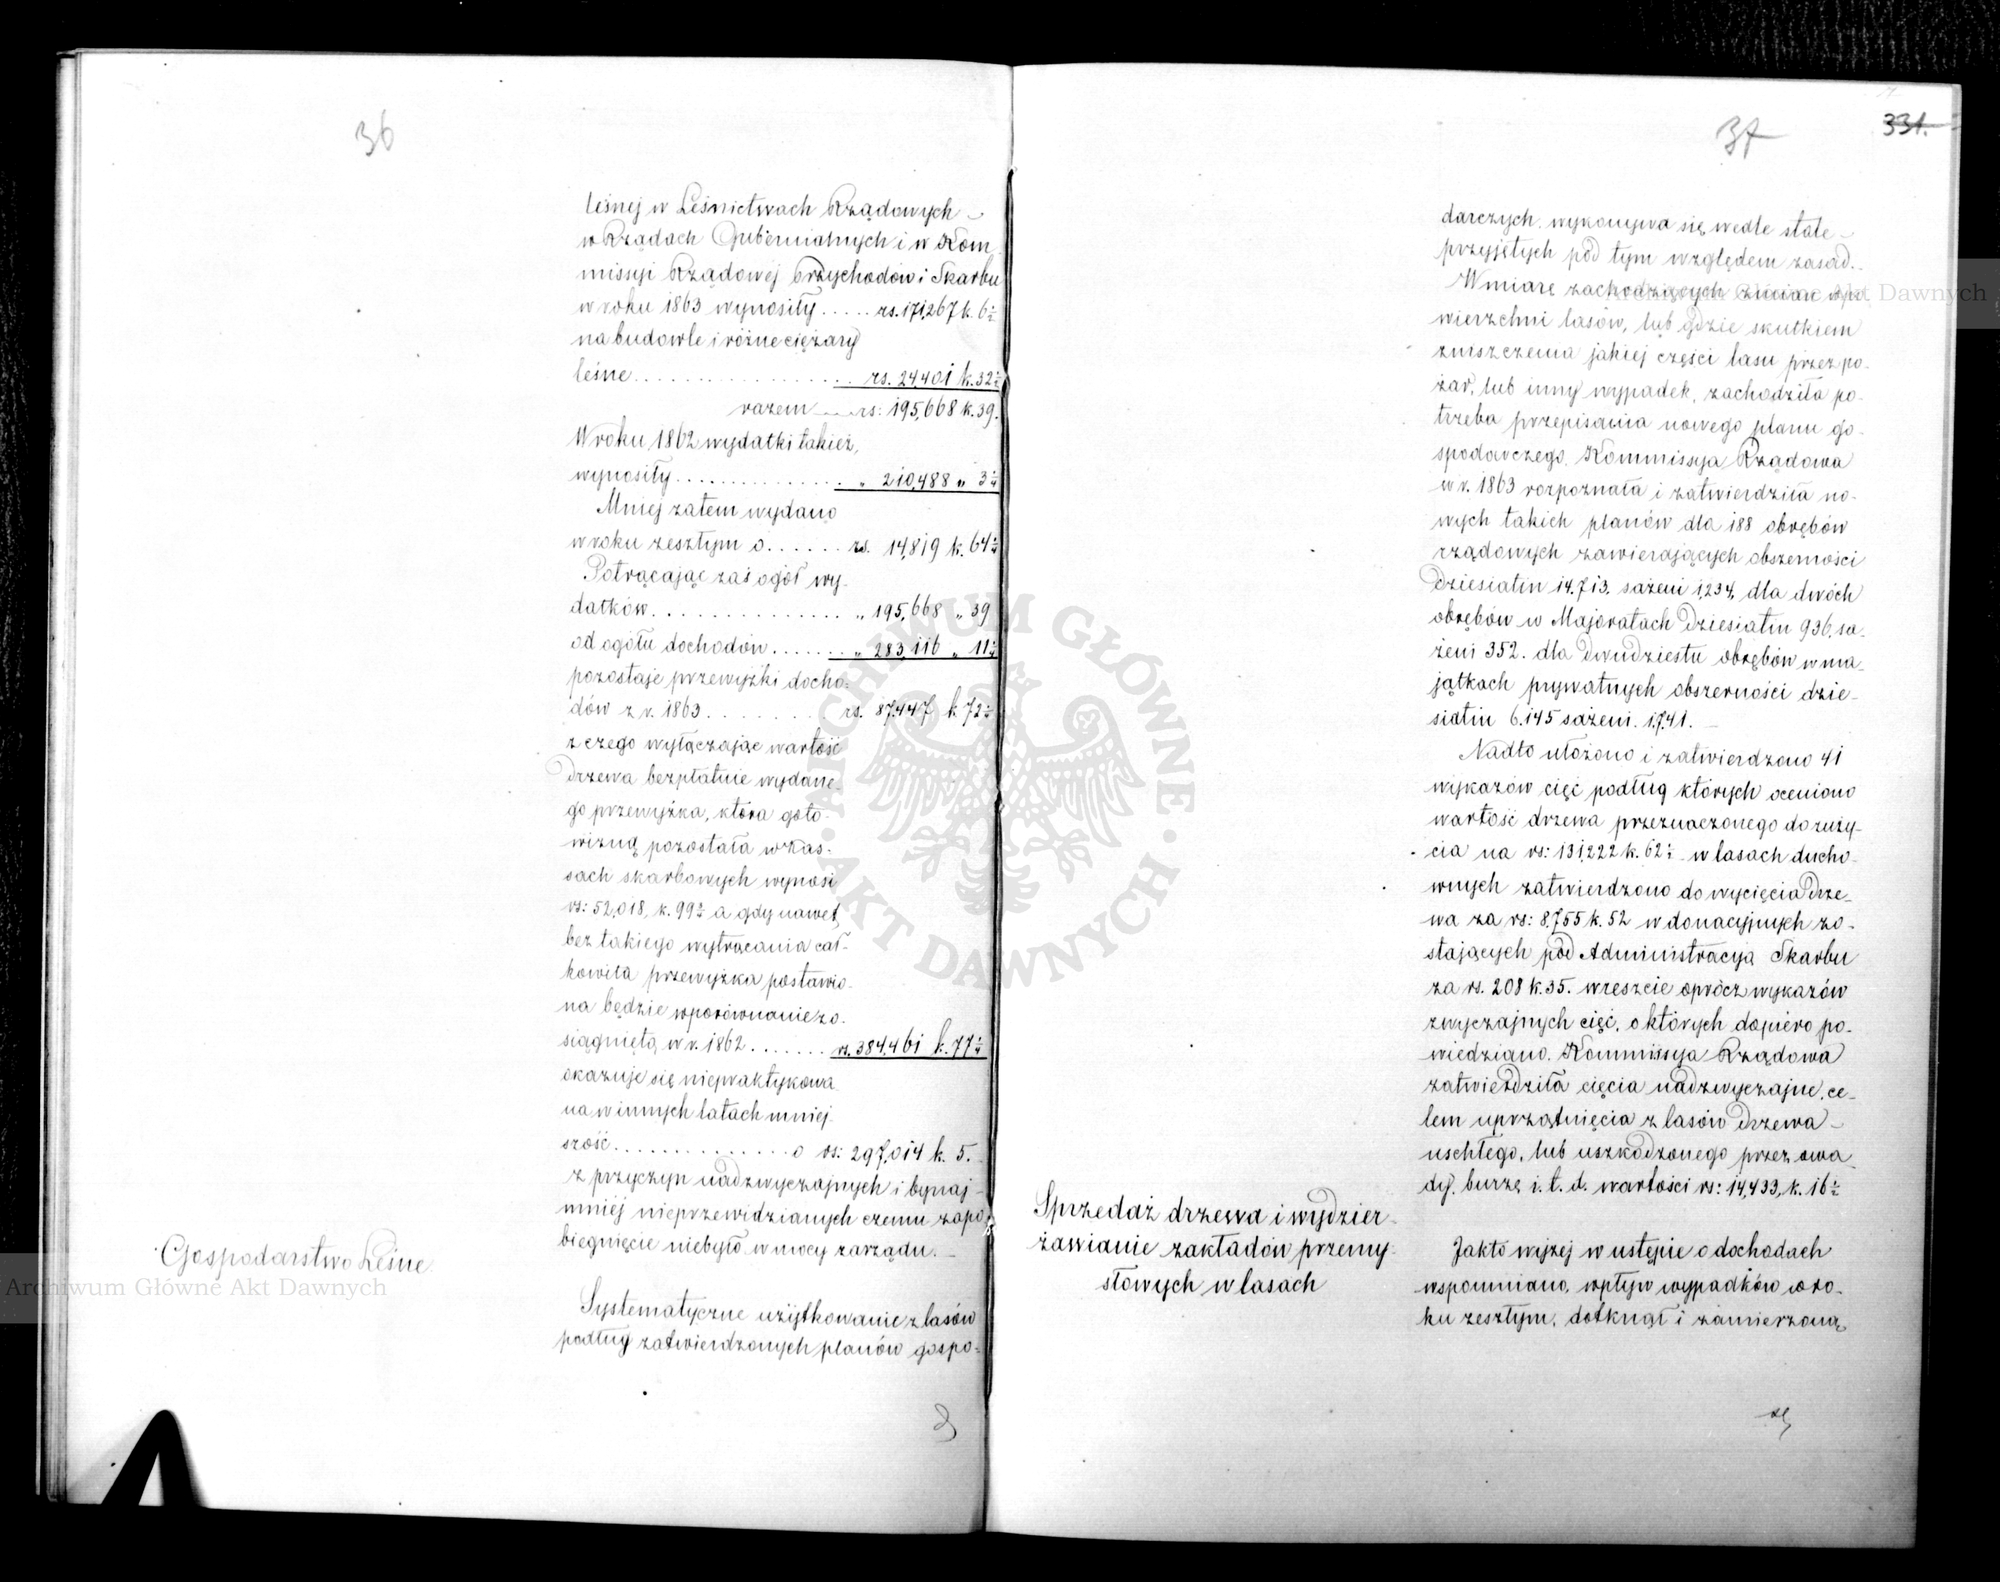 36
leśnej w Leśnictwach Rządowych –
w Rządach Gubernialnych i w Kom
missyi Rządowej Przychodów i Skarbu
w roku 1863 wynosiły ..... rs. 171,267 k. 6½
na budowle i różne ciężary
leśne .................. rs. 24401 k. 32½
razem ...... rs: 195,668 k. 39.
W roku 1862 wydatki takież,
wynosiły .............. „ 210,488 „ 3¼
Mniej zatem wydano
w roku zeszłym o ...... rs. 14,819 k. 64¼
Potrącając zaś ogół wy-
datków ................ „ 195,668 „ 39
od ogółu dochodów ....... „ 283,116 „ 11½
pozostaje przewyżki docho-
dów z r. 1863 ......... rs. 87.447 k 72½
z czego wyłączając wartość
drzewa bezpłatnie wydane-
go przewyżka, która goto-
wizną pozostała w Kas-
sach skarbowych wynosi
rs: 52,018, k. 99½ a gdy nawet
bez takiego wytrącania cał-
kowita przewyżka postawio-
na będzie w porównanie z o-
siągniętą w r. 1862 ....... rs. 384,461 k. 77½
okazuje się niepraktykowa
na w innych latach mniej-
szość ............. o rs: 297,014 k. 5.
z przyczyn nadzwyczajnych i bynaj-
mniej nieprzewidzianych czemu zapo
biegnięcie niebyło w mocy zarządu. –
Gospodarstwo Leśne.
Systematyczne użytkowanie z lasów
podług zatwierdzonych planów gospo-
37
331.
darczych wykonywa się wedle stale –
przyjętych pod tym względem zasad. –
W miarę zachodzących zmian w po
wierzchni lasów, lub gdzie skutkiem
zniszczenia jakiej części lasu przez po-
żar, lub inny wypadek, zachodziła po-
trzeba przepisania nowego planu go-
spodarczego, Kommissya Rządowa
w r. 1863 rozpoznała i zatwierdziła no-
wych takich planów dla 188 obrębów
rządowych zawierających obszerności
Dziesiatin 14.713. sażeni 1,234, dla dwóch
obrębów w Majoratach Dziesiatin 936, sa-
żeni 352. dla Dwudziestu obrębów w ma-
jątkach prywatnych obszerności dzie-
siatin 6.145 sażeni. 1.741. –
Nadto ułożono i zatwierdzono 41
wykazów cięć podług których oceniono
wartość drzewa przeznaczonego do zuży-
cia na rs: 131,222 k. 62½ – w lasach ducho-
wnych zatwierdzono do wycięcia Drze-
wa za rs: 8,755 k. 52 w donacyjnych zo-
stających pod Administracyą Skarbu
za rs. 208 k. 35. wreszcie oprócz wykazów
zwyczajnych cięć, o których dopiero po-
wiedziano. Kommissya Rządowa
zatwierdziła cięcia nadzwyczajne, ce-
lem uprzątnięcia z lasów Drzewa –
uschłego, lub uszkodzonego przez owa
dy, burzę i. t. d. wartości rs: 14,433, k. 16½
Sprzedaż drzewa i wydzier-
żawianie zakładów przemy-
słowych w lasach
Jak to wyżej w ustępie o dochodach
wspomniano, wpływ wypadków w ro-
ku zeszłym, dotknął i zamierzoną
ARCHIWUM GŁÓWNE · AKT DAWNYCH ·
Archiwum Główne Akt Dawnych
Archiwum Główne Akt Dawnych